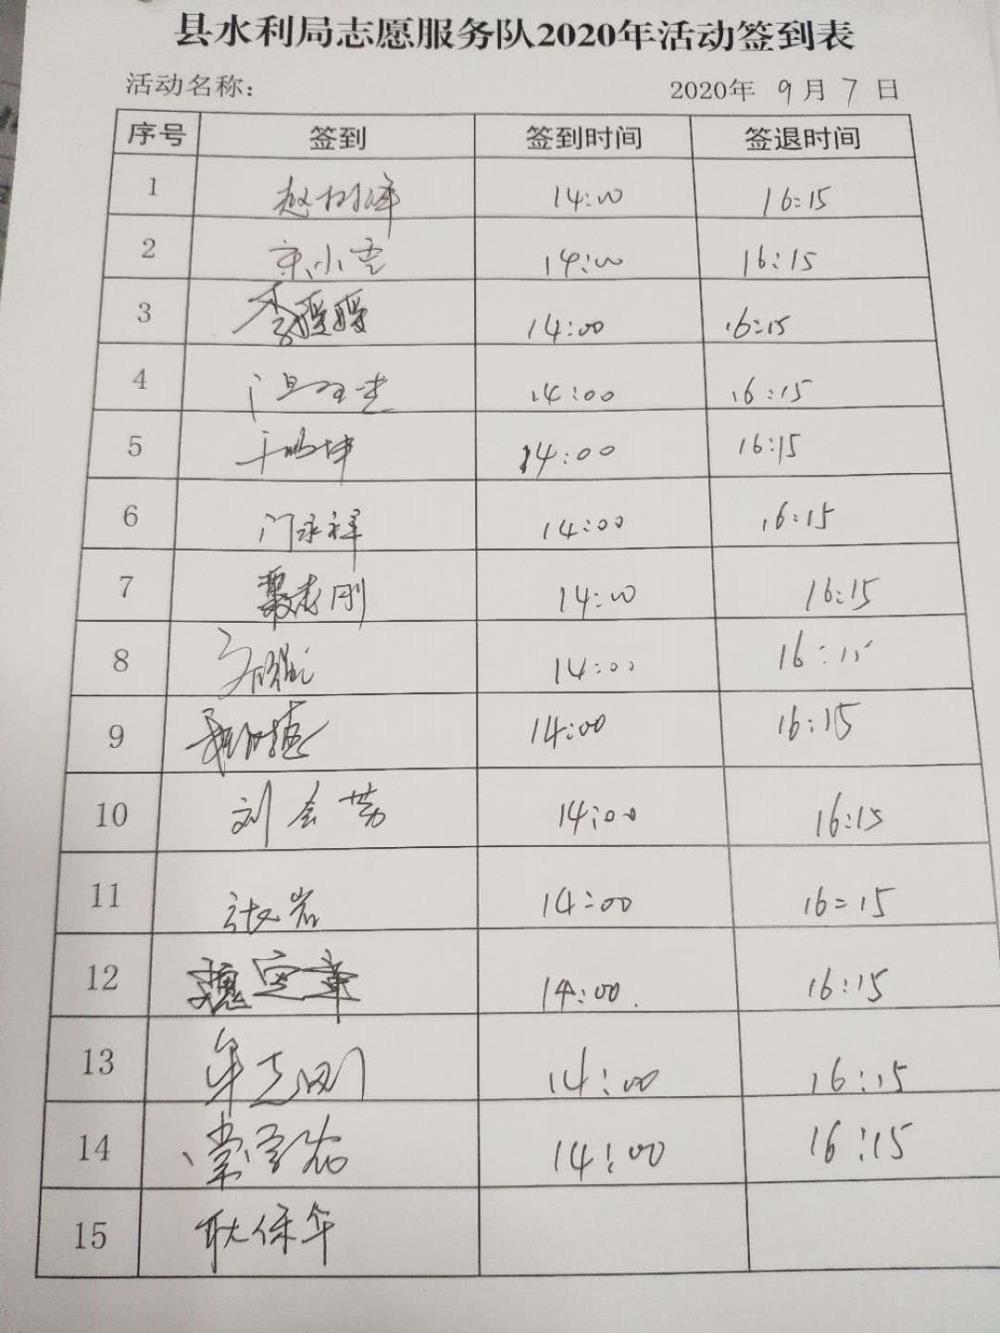 县水利局志愿服务队2020年活动签到表
活动名称： 2020年 9月 7日
序号 签到 签到时间 签退时间
1 赵树泽 14:00 16:15
2 宋小雪 14:00 16:15
3 李媛媛 14:00 16:15
4 14:00 16:15
5 14:00 16:15
6 门永祥 14:00 16:15
7 聂志刚 14:00 16:15
8 14:00 16:15
9 14:00 16:15
10 刘会芳 14:00 16:15
11 张岩 14:00 16:15
12 魏定章 14:00 16:15
13 牟志刚 14:00 16:15
14 14:00 16:15
15 耿保华